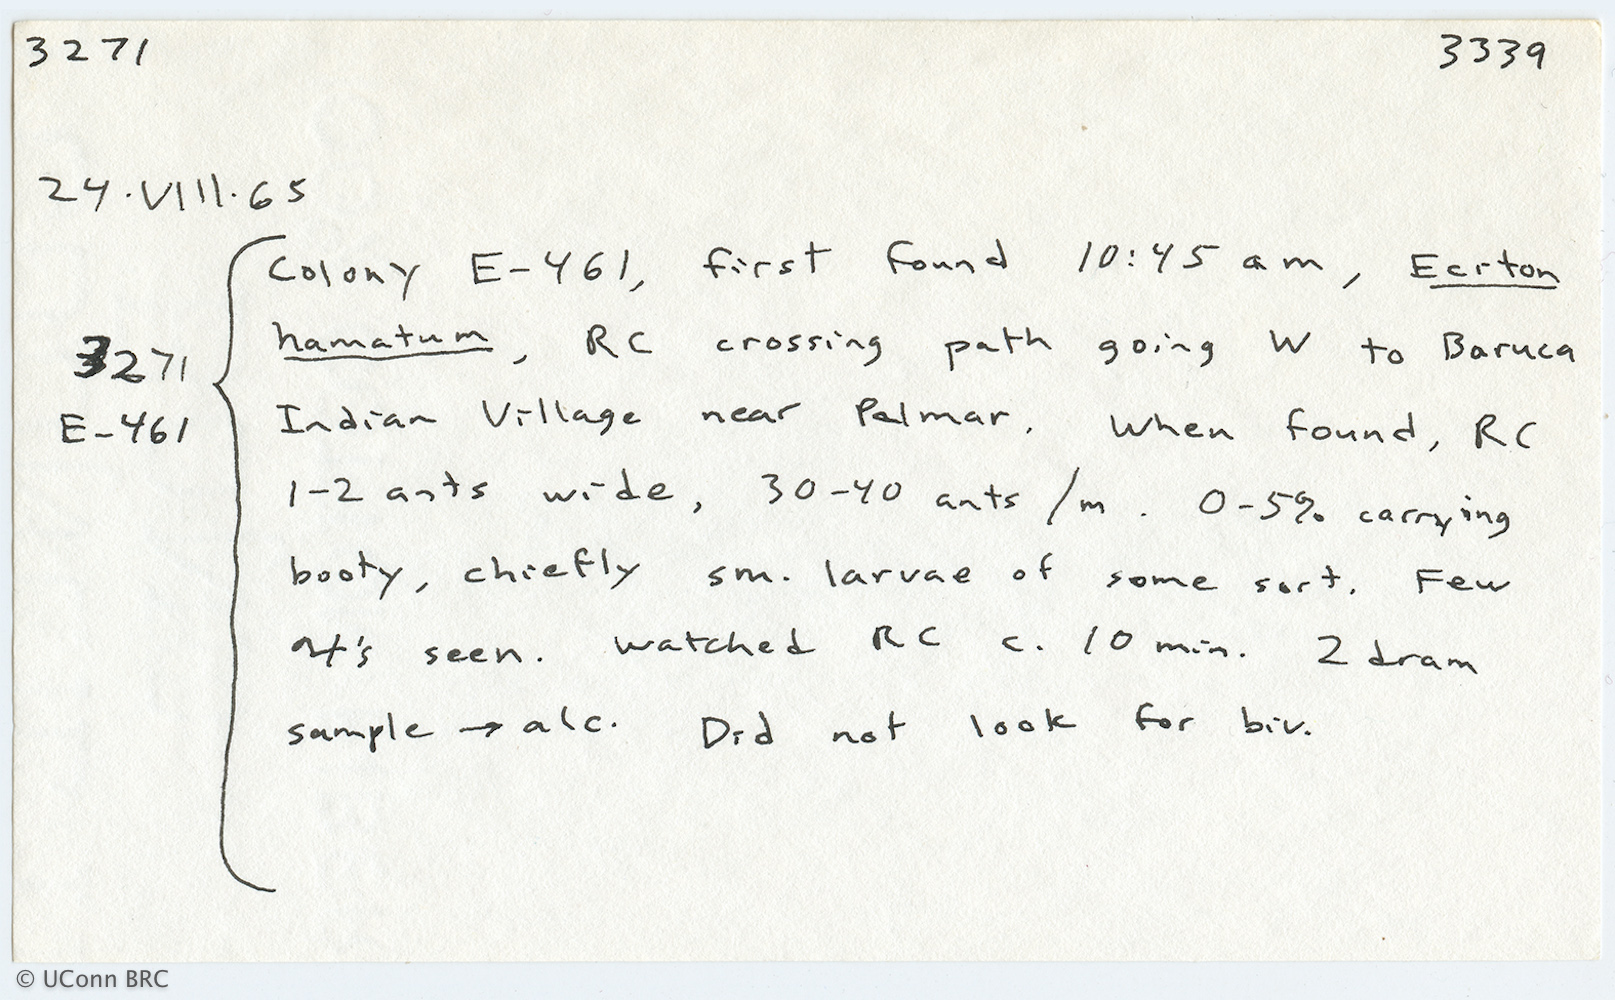 3271 3339
24.VIII.65
Colony E-461, first found 10:45 am, Eciton
hamatum, RC crossing path going W to Baruca
3271
Indian Village near Palmar. When found, RC
E-461
1-2 ants wide, 30-40 ants /m. 0-5% carrying
booty, chiefly sm. larvae of some sort. Few
seen. Watched RC c. 10 min. 2 dram
sample → alc. Did not look for biv.
© UConn BRC